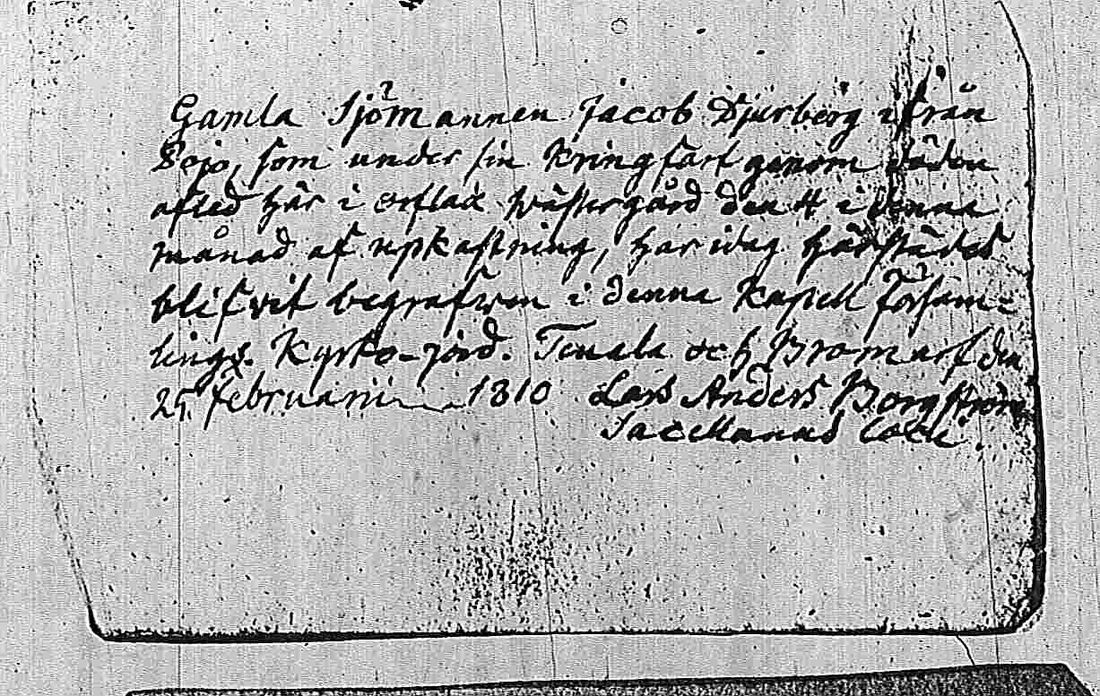 Gamla Sjömannen Jacob Djurberg ifrån
Pejo, som under sin Kringfart genom döden
afled här i Orflax Wästergård den 4 i denna
månad af upkastning, har idag härstädes
blifvit begrafven i denna Kapell Försam-
lings. Kyrko-jord. Tenala och Bromarf den
25 februarii 1810 Lars Anders Borgström
Sacellanus loci.